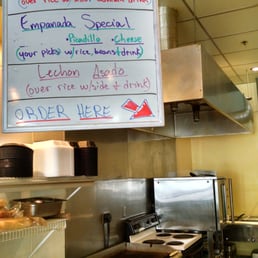 (over rice w/
Empanada Special
• Picadillo • Cheese
(your picks w/rice, beans & drink)
Lechon Asado
(over rice w/side & drink)
ORDER HERE